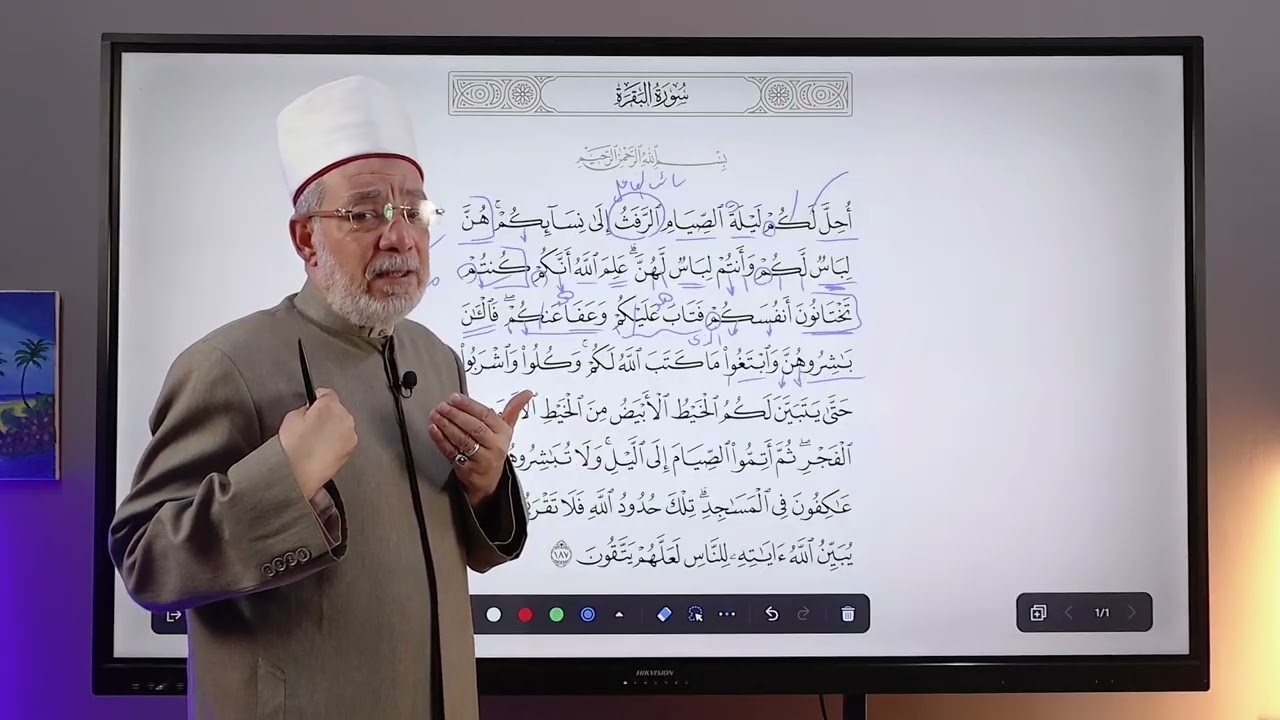 سُورَةُ البَقَرَةِ
بِسْمِ اللَّهِ الرَّحْمَٰنِ الرَّحِيمِ
أُحِلَّ لَكُمْ لَيْلَةَ ٱلصِّيَامِ ٱلرَّفَثُ إِلَىٰ نِسَآئِكُمْۚ هُنَّ
لِبَاسٌ لَّكُمْ وَأَنتُمْ لِبَاسٌ لَّهُنَّۗ عَلِمَ ٱللَّهُ أَنَّكُمْ كُنتُمْ
تَخْتَانُونَ أَنفُسَكُمْ فَتَابَ عَلَيْكُمْ وَعَفَا عَنكُمْۖ فَٱلْـَٰٔنَ
بَٰشِرُوهُنَّ وَٱبْتَغُوا۟ مَا كَتَبَ ٱللَّهُ لَكُمْۚ وَكُلُوا۟ وَٱشْرَبُوا۟
حَتَّىٰ يَتَبَيَّنَ لَكُمُ ٱلْخَيْطُ ٱلْأَبْيَضُ مِنَ ٱلْخَيْطِ
ٱلْفَجْرِۖ ثُمَّ أَتِمُّوا۟ ٱلصِّيَامَ إِلَى ٱلَّيْلِۚ وَلَا
عَٰكِفُونَ فِى ٱلْمَسَٰجِدِۗ تِلْكَ حُدُودُ ٱللَّهِ فَلَا
يُبَيِّنُ ٱللَّهُ ءَايَٰتِهِۦ لِلنَّاسِ لَعَلَّهُمْ يَتَّقُونَ ١٨٧
1/1
HIKVISION